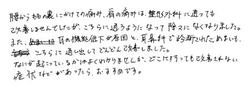 腰からももの裏にかけての痛み、肩の痛みは、整形外科に通っても
改善しませんでしたが、こちらに通うようになって段々になくなりました。
また、耳の機能低下が原因と、耳鼻科で診断されためまいも、
こちらに通い出してどんどん改善しました。
なにが起こっているかはよくわかりませんが、どこに行っても改善されない
症状などがあったら、おすすめです。